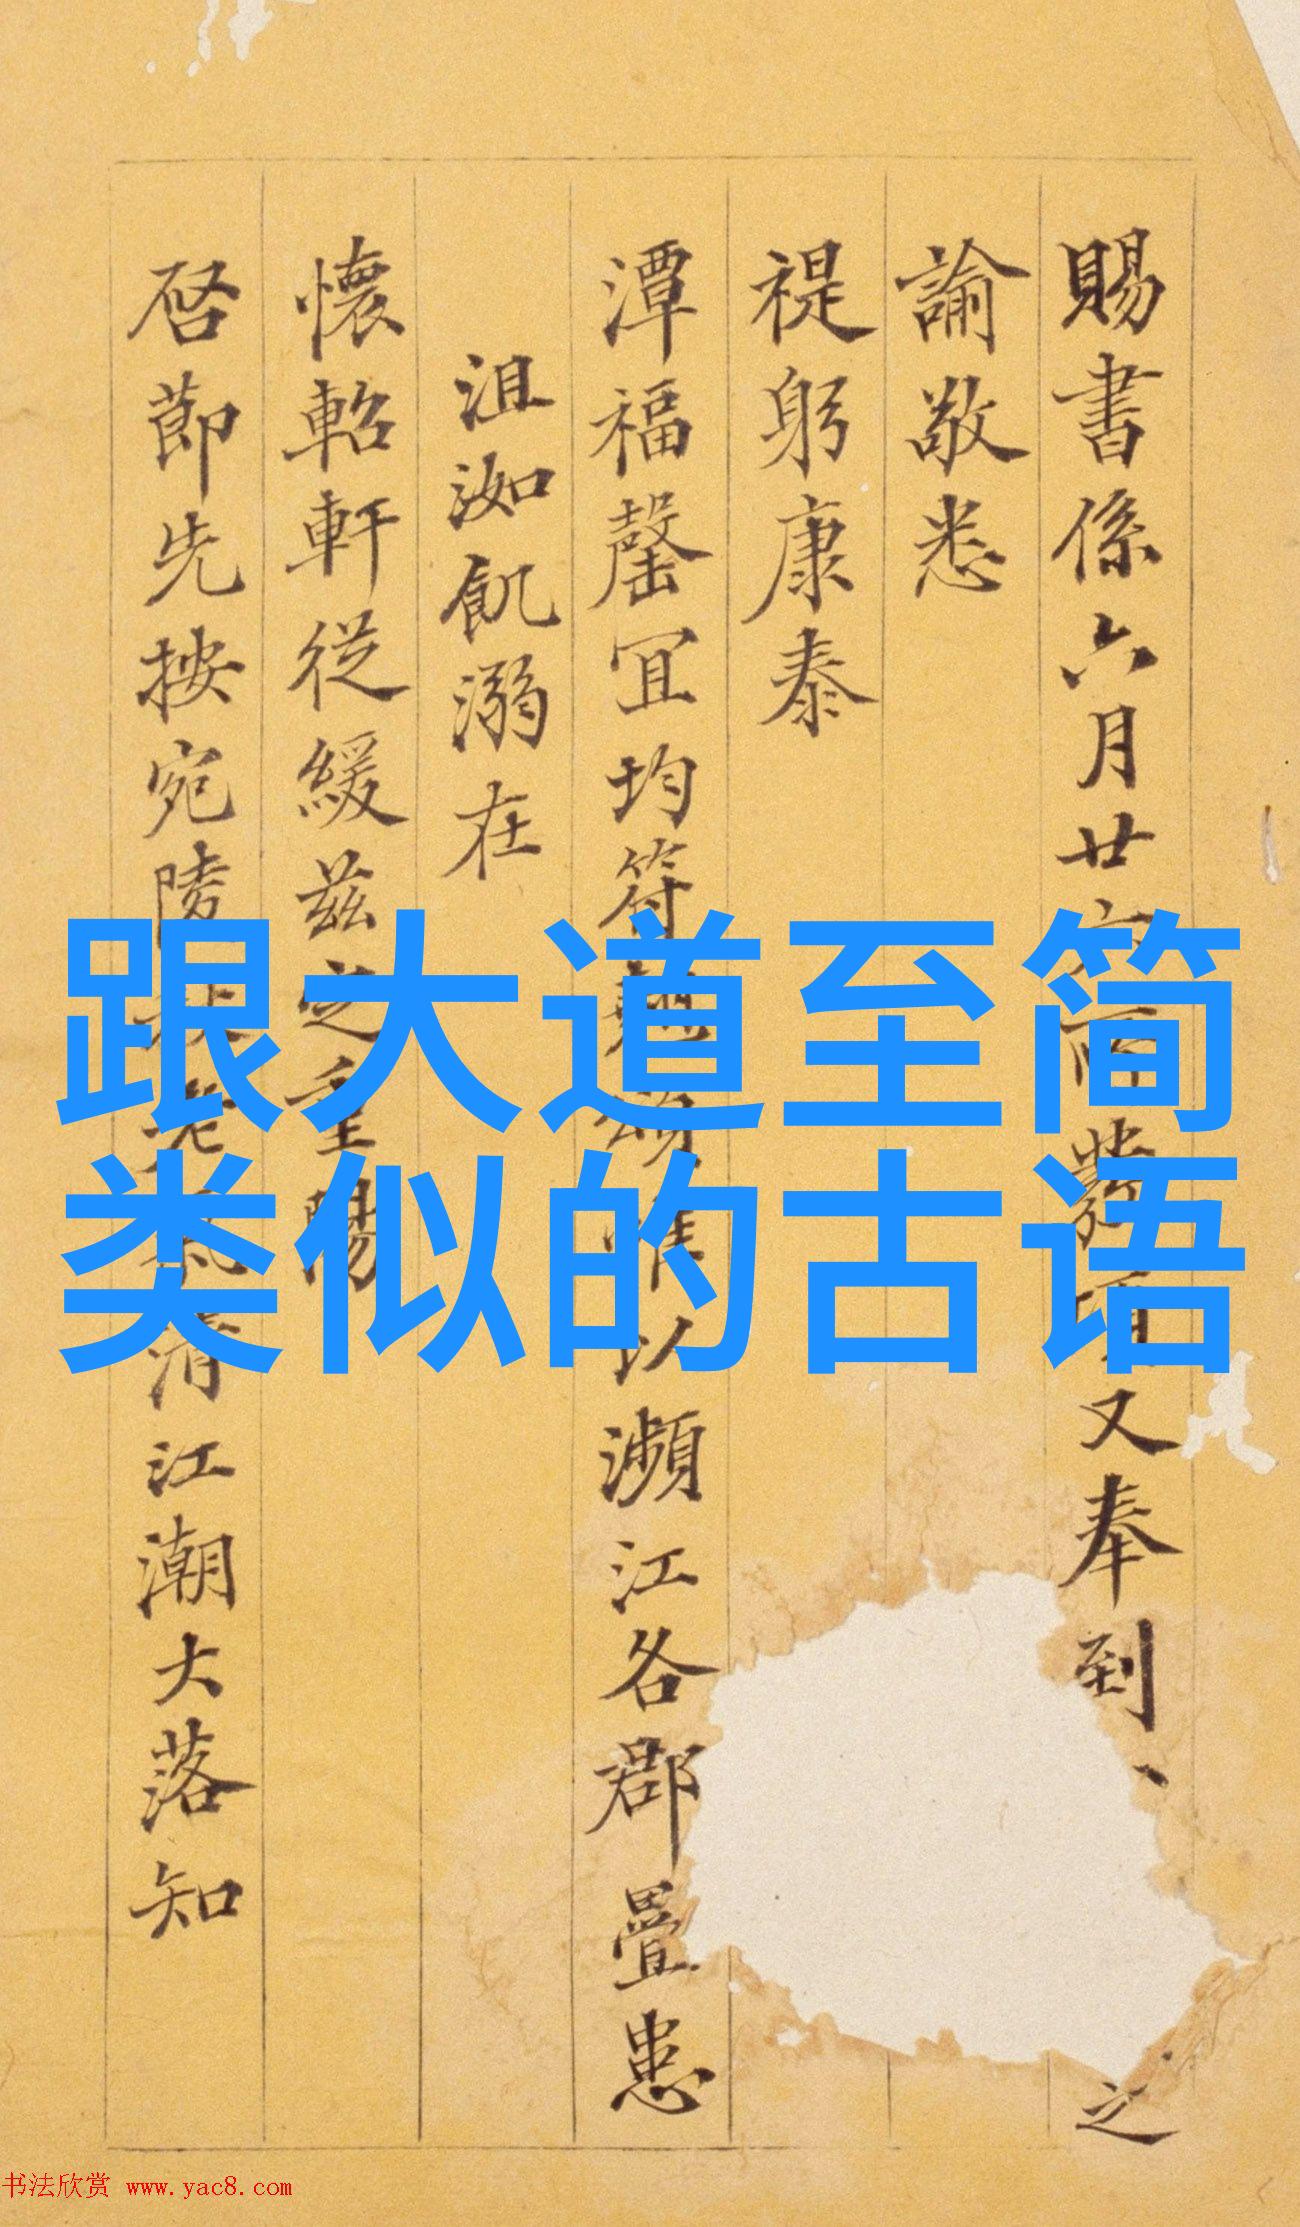 跟大道至简
类似的古语
賜書係六月廿
又奉到、
之
諭敬悉
禔躬康泰
潭福罄宜均符
以瀕江各郡疊患
沮洳飢溺在
懷軺軒從緩茲
啓節先按宛陵
清江潮大落知
书法欣赏 www.yac8.com